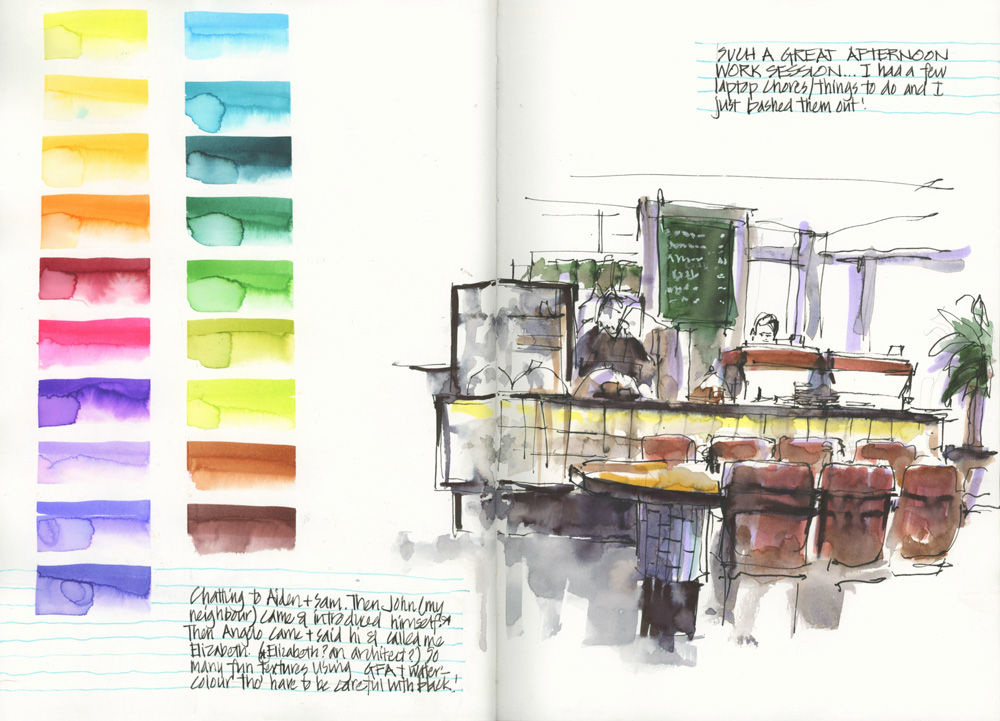 SUCH A GREAT AFTERNOON
WORK SESSION... I had a few
laptop chores/things to do and I
just bashed them out!
Chatting to Aiden + Sam. Then John (my
neighbour) came & introduced himself
Then Angelo came + said hi & called me
Elizabeth. (Elizabeth? an architect?) So
many fun textures using GFA + water-
colour tho' have to be careful with black!